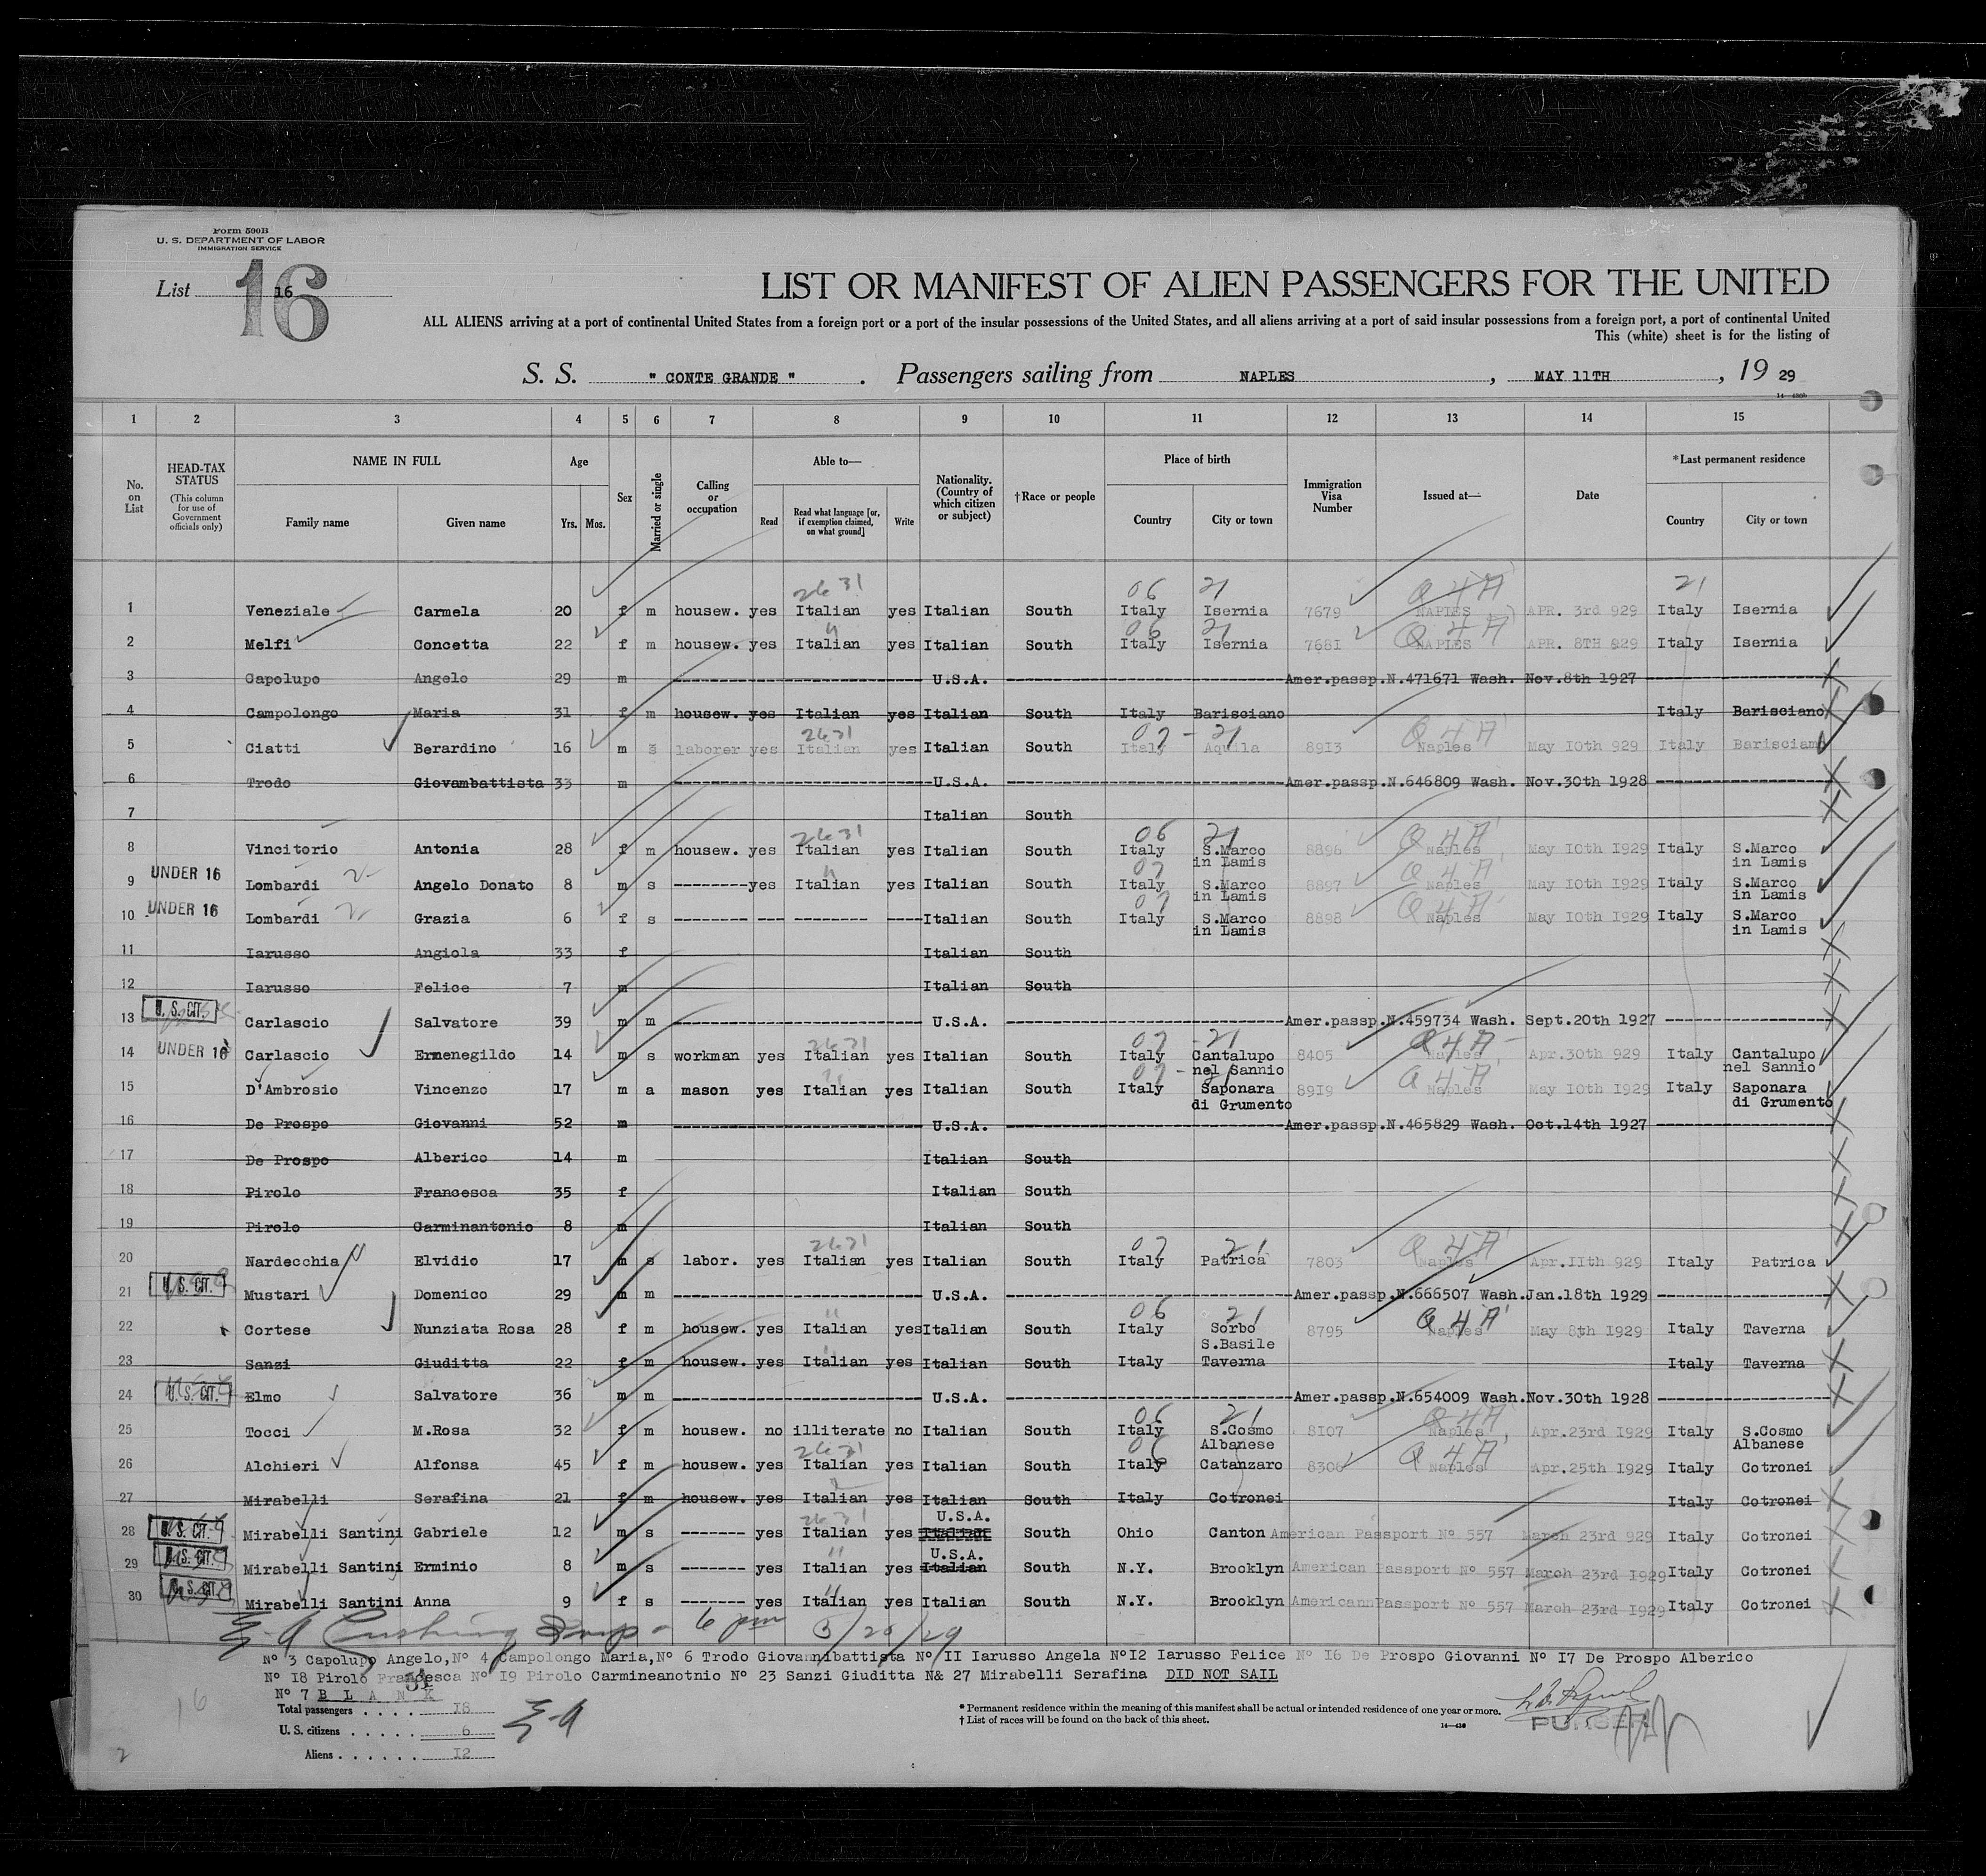 Form 500B
U. S. DEPARTMENT OF LABOR
IMMIGRATION SERVICE
List 16
16
LIST OR MANIFEST OF ALIEN PASSENGERS FOR THE UNITED
ALL ALIENS arriving at a port of continental United States from a foreign port or a port of the insular possessions of the United States, and all aliens arriving at a port of said insular possessions from a foreign port, a port of continental United
This (white) sheet is for the listing of
S. S. " CONTE GRANDE " . Passengers sailing from NAPLES , MAY 11TH , 19 29
1 2 3 4 5 6 7 8 9 10 11 12 13 14 15
No. on List
HEAD-TAX STATUS (This column for use of Government officials only)
NAME IN FULL
Family name Given name
Age
Yrs. Mos.
Sex
Married or single
Calling or occupation
Able to—
Read
Read what language [or, if exemption claimed, on what ground]
Write
Nationality. (Country of which citizen or subject)
†Race or people
Place of birth
Country City or town
Immigration Visa Number
Issued at—
Date
*Last permanent residence
Country City or town
1 Veneziale Carmela 20 f m housew. yes Italian yes Italian South Italy Isernia 7679 NAPLES APR. 3rd 929 Italy Isernia
2 Melfi Concetta 22 f m housew. yes Italian yes Italian South Italy Isernia 7681 NAPLES APR. 8TH 929 Italy Isernia
3 Capolupo Angelo 29 m U.S.A. Amer.passp.N.471671 Wash. Nov.8th 1927
4 Campolongo Maria 31 f m housew. yes Italian yes Italian South Italy Barisciano Italy Barisciano
5 Ciatti Berardino 16 m s laborer yes Italian yes Italian South Italy Aquila 8913 Naples May 10th 929 Italy Barisciano
6 Trodo Giovambattista 33 m U.S.A. Amer.passp.N.646809 Wash. Nov.30th 1928
7 Italian South
8 Vincitorio Antonia 28 f m housew. yes Italian yes Italian South Italy S.Marco in Lamis 8896 Naples May 10th 1929 Italy S.Marco in Lamis
9 UNDER 16 Lombardi Angelo Donato 8 m s -------- yes Italian yes Italian South Italy S.Marco in Lamis 8897 Naples May 10th 1929 Italy S.Marco in Lamis
10 UNDER 16 Lombardi Grazia 6 f s -------- --- -------- ---- Italian South Italy S.Marco in Lamis 8898 Naples May 10th 1929 Italy S.Marco in Lamis
11 Iarusso Angiola 33 f Italian South
12 Iarusso Felice 7 m Italian South
13 U. S. CIT. Carlascio Salvatore 39 m m U.S.A. Amer.passp.N.459734 Wash. Sept.20th 1927
14 UNDER 16 Carlascio Ermenegildo 14 m s workman yes Italian yes Italian South Italy Cantalupo nel Sannio 8405 Naples Apr.30th 929 Italy Cantalupo nel Sannio
15 D'Ambrosio Vincenzo 17 m a mason yes Italian yes Italian South Italy Saponara di Grumento 8919 Naples May 10th 1929 Italy Saponara di Grumento
16 De Prospo Giovanni 52 m U.S.A. Amer.passp.N.465829 Wash. Oct.14th 1927
17 De Prospo Alberico 14 m Italian South
18 Pirolo Francesca 35 f Italian South
19 Pirolo Carminantonio 8 m Italian South
20 Nardecchia Elvidio 17 m s labor. yes Italian yes Italian South Italy Patrica 7803 Naples Apr.11th 929 Italy Patrica
21 U. S. CIT. Mustari Domenico 29 m m U.S.A. Amer.passp.N.666507 Wash.Jan.18th 1929
22 Cortese Nunziata Rosa 28 f m housew. yes Italian yes Italian South Italy Sorbo S.Basile 8795 Naples May 8th 1929 Italy Taverna
23 Sanzi Giuditta 22 f m housew. yes Italian yes Italian South Italy Taverna Italy Taverna
24 U. S. CIT. Elmo Salvatore 36 m m U.S.A. Amer.passp.N.654009 Wash.Nov.30th 1928
25 Tocci M.Rosa 32 f m housew. no illiterate no Italian South Italy S.Cosmo Albanese 8107 Naples Apr.23rd 1929 Italy S.Cosmo Albanese
26 Alchieri Alfonsa 45 f m housew. yes Italian yes Italian South Italy Catanzaro 8306 Naples Apr.25th 1929 Italy Cotronei
27 Mirabelli Serafina 21 f m housew. yes Italian yes Italian South Italy Cotronei Italy Cotronei
28 U. S. CIT. Mirabelli Santini Gabriele 12 m s ------- yes Italian yes U.S.A. South Ohio Canton American Passport Nº 557 March 23rd 929 Italy Cotronei
29 U. S. CIT. Mirabelli Santini Erminio 8 m s ------- yes Italian yes U.S.A. Italian South N.Y. Brooklyn American Passport Nº 557 March 23rd 1929 Italy Cotronei
30 U. S. CIT. Mirabelli Santini Anna 9 f s ------- yes Italian yes Italian South N.Y. Brooklyn AmericannPassport Nº 557 March 23rd 1929 Italy Cotronei
6 pm 5/20/29
Nº 3 Capolupo Angelo,Nº 4 Campolongo Maria,Nº 6 Trodo Giovannibattista Nº II Iarusso Angela NºI2 Iarusso Felice Nº I6 De Prospo Giovanni Nº I7 De Prospo Alberico
Nº I8 Pirolo Francesca Nº I9 Pirolo Carmineanotnio Nº 23 Sanzi Giuditta N& 27 Mirabelli Serafina DID NOT SAIL
Nº 7 B L A N K
Total passengers . . . . 18
U. S. citizens . . . . . . 6
Aliens . . . . . . 12
* Permanent residence within the meaning of this manifest shall be actual or intended residence of one year or more.
† List of races will be found on the back of this sheet.
PURSER